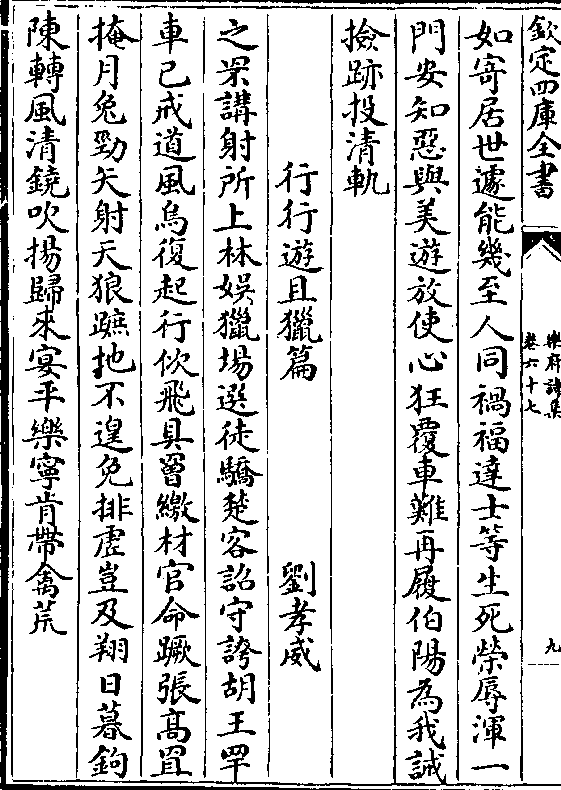 欽定四庫全書
樂府詩集
卷六十七
九
如寄居世遽能幾至人同禍福達士等生死榮辱渾一
門安知惡與美遊放使心狂覆車難再履伯陽為我誡
撿跡投清軌
行行遊且獵篇 劉孝威
之罘講射所上林娯獵場選徒驕楚客詔守誇胡王罕
車已戒道風烏復起行佽飛具矰繳材官命蹶張髙罝
掩月兔勁矢射天狼蹠地不遑免排虛豈及翔日暮鉤
陳轉風清鐃吹揚歸來宴平樂寧肯帶禽荒